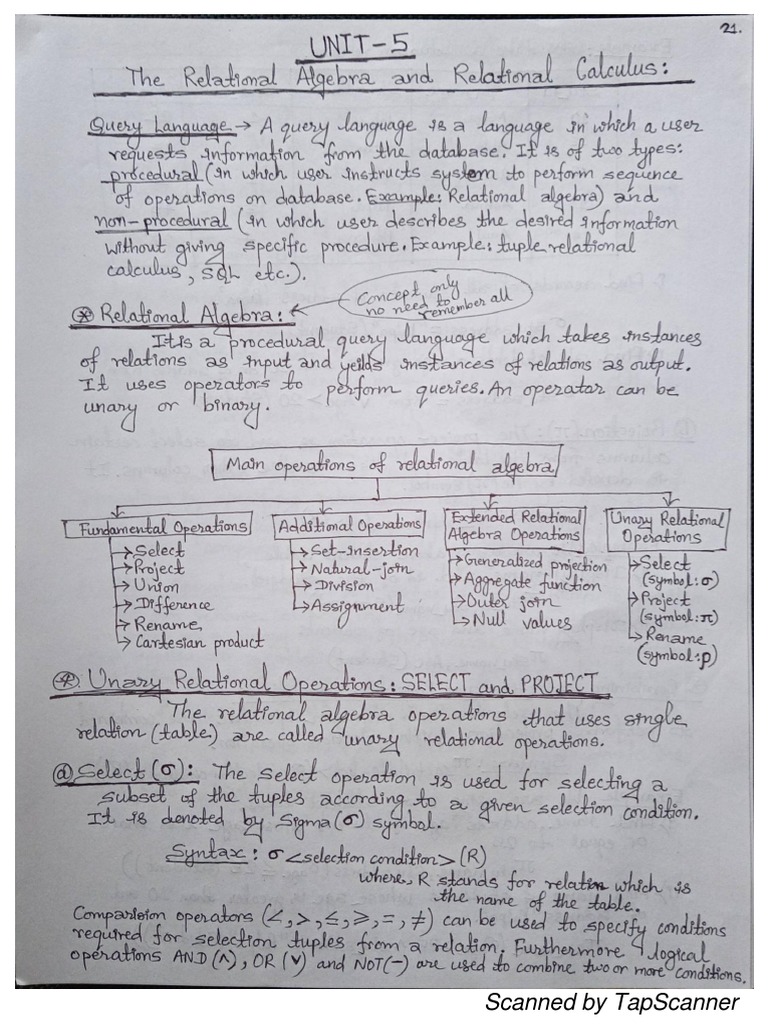 21.
UNIT-5
The Relational Algebra and Relational Calculus:
Query Language → A query language is a language in which a user
requests information from the database. It is of two types:
procedural (in which user instructs system to perform sequence
of operations on database. Example: Relational algebra) and
non-procedural (in which user describes the desired information
without giving specific procedure. Example: tuple relational
calculus, SQL etc.).
Concept only
no need to
remember all
⊛ Relational Algebra:
It is a procedural query language which takes instances
of relations as input and yeilds instances of relations as output.
It uses operators to perform queries. An operatar can be
unary or binary.
Main operations of relational algebra
Fundamental Operations
→ Select
→ Project
→ Union
→ Difference
→ Rename
→ Cartesian product
Additional Operations
→ Set-Insertion
→ Natural-join
→ Division
→ Assignment
Extended Relational
Algebra Operations
→ Generalized projection
→ Aggregate function
→ Outer join
→ Null values
Unary Relational
Operations
→ Select
(symbol: σ)
→ Project
(symbol: π)
→ Rename
(symbol: ρ)
⊛. Unary Relational Operations: SELECT and PROJECT
The relational algebra operations that uses single
relation (table) are called unary relational operations.
ⓐ Select (σ): The select operation is used for selecting a
subset of the tuples according to a given selection condition.
It is denoted by Sigma (σ) symbol.
Syntax: σ <selection condition> (R)
where, R stands for relation which is
the name of the table.
Comparision operators (<, >, ≤, ≥, =, ≠) can be used to specify conditions
required for selection tuples from a relation. Furthermore logical
operations AND (∧), OR (∨) and NOT (−) are used to combine two or more conditions.
Scanned by TapScanner